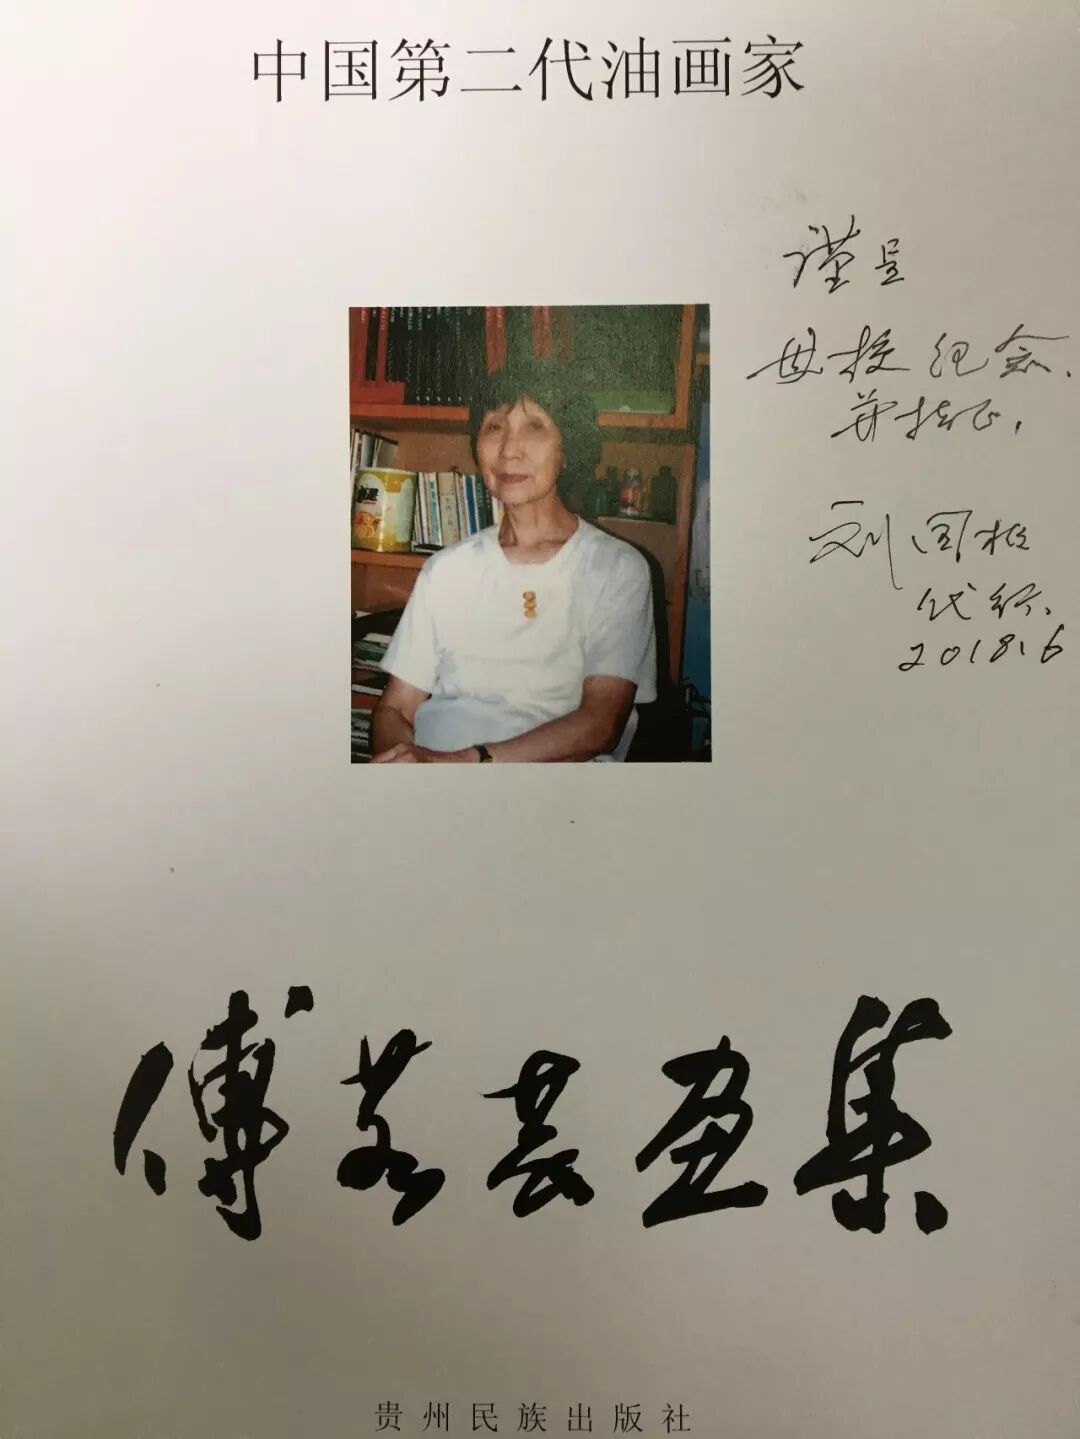 中国第二代油画家
谨呈
母校纪念.
并指正,
刘国枢
代行.
2018.6
傅若芸画集
贵州民族出版社